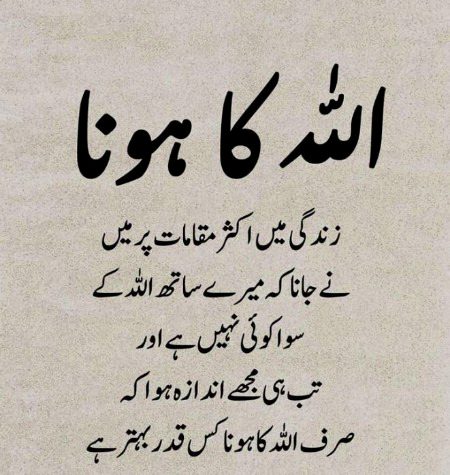 اللہ کا ہونا
زندگی میں اکثر مقامات پر میں
نے جانا کہ میرے ساتھ اللہ کے
سوا کوئی نہیں ہے اور
تب ہی مجھے اندازہ ہوا کہ
صرف اللہ کا ہونا کس قدر بہتر ہے